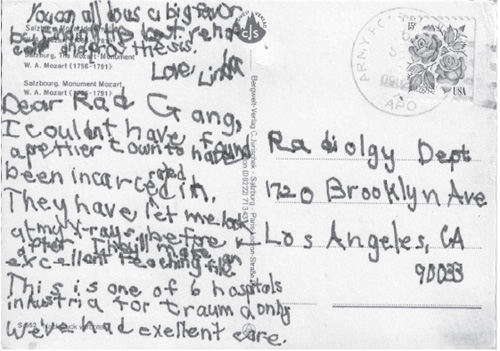 You can all do us a big favor
by the best rehab
Love, Linda
Salzburg, The Mozart-Monument
W. A. Mozart (1756–1791)
Salzbourg, Monument Mozart
W. A. Mozart (1756–1791)
Dear Rad Gang,
I couldnt have found
a prettier town to have
been incarcerated in.
They have let me look
at my X-rays, before &
after. They'll make an
excellent teaching file
This is one of 6 hospitals
in Austria for trauma only
We've had exellent care.
ARMY
APO
15c
USA
Radiolgy Dept
1720 Brooklyn Ave
Los Angeles, CA
90033